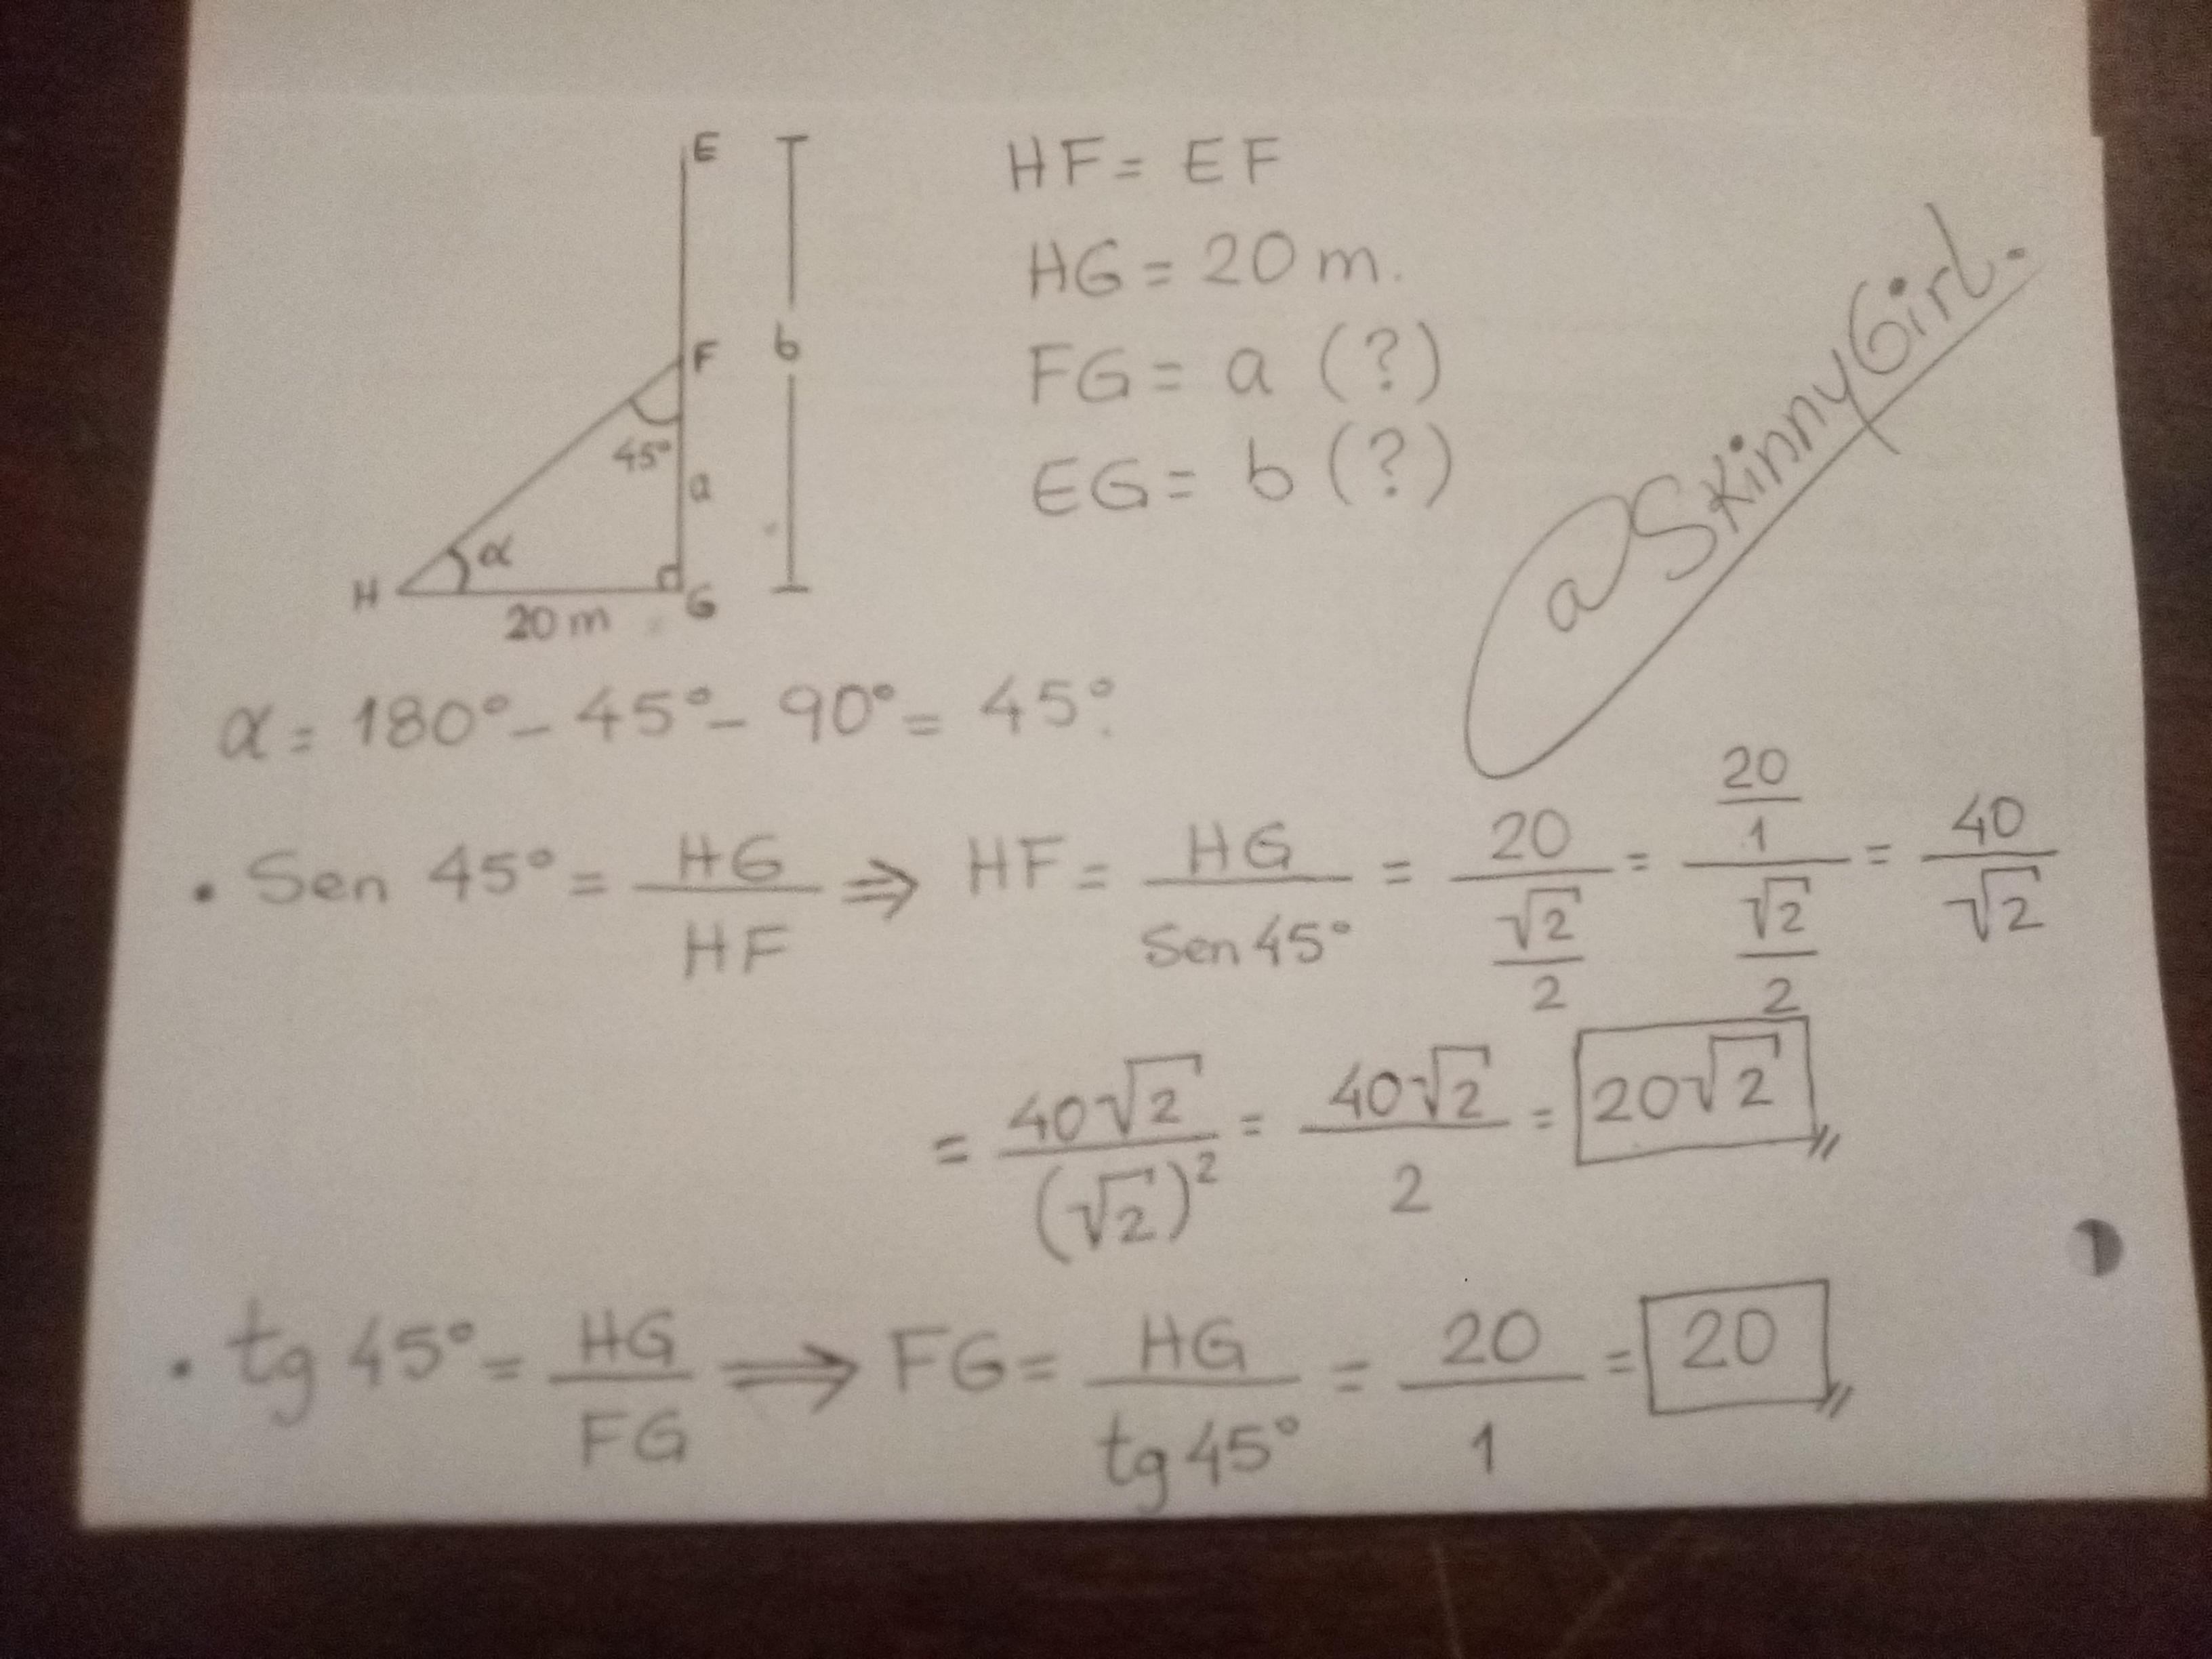 E
F
b
45°
a
α
H
G
20 m
HF = EF
HG = 20 m.
FG = a (?)
EG = b (?)
@SkinnyGirl.
α = 180° - 45° - 90° = 45°.
• Sen 45° = HG/HF ⇒ HF = HG/Sen 45° = 20/(√2/2) = (20/1)/(√2/2) = 40/√2
= 40√2/(√2)² = 40√2/2 = 20√2
• tg 45° = HG/FG ⟹ FG = HG/tg 45° = 20/1 = 20